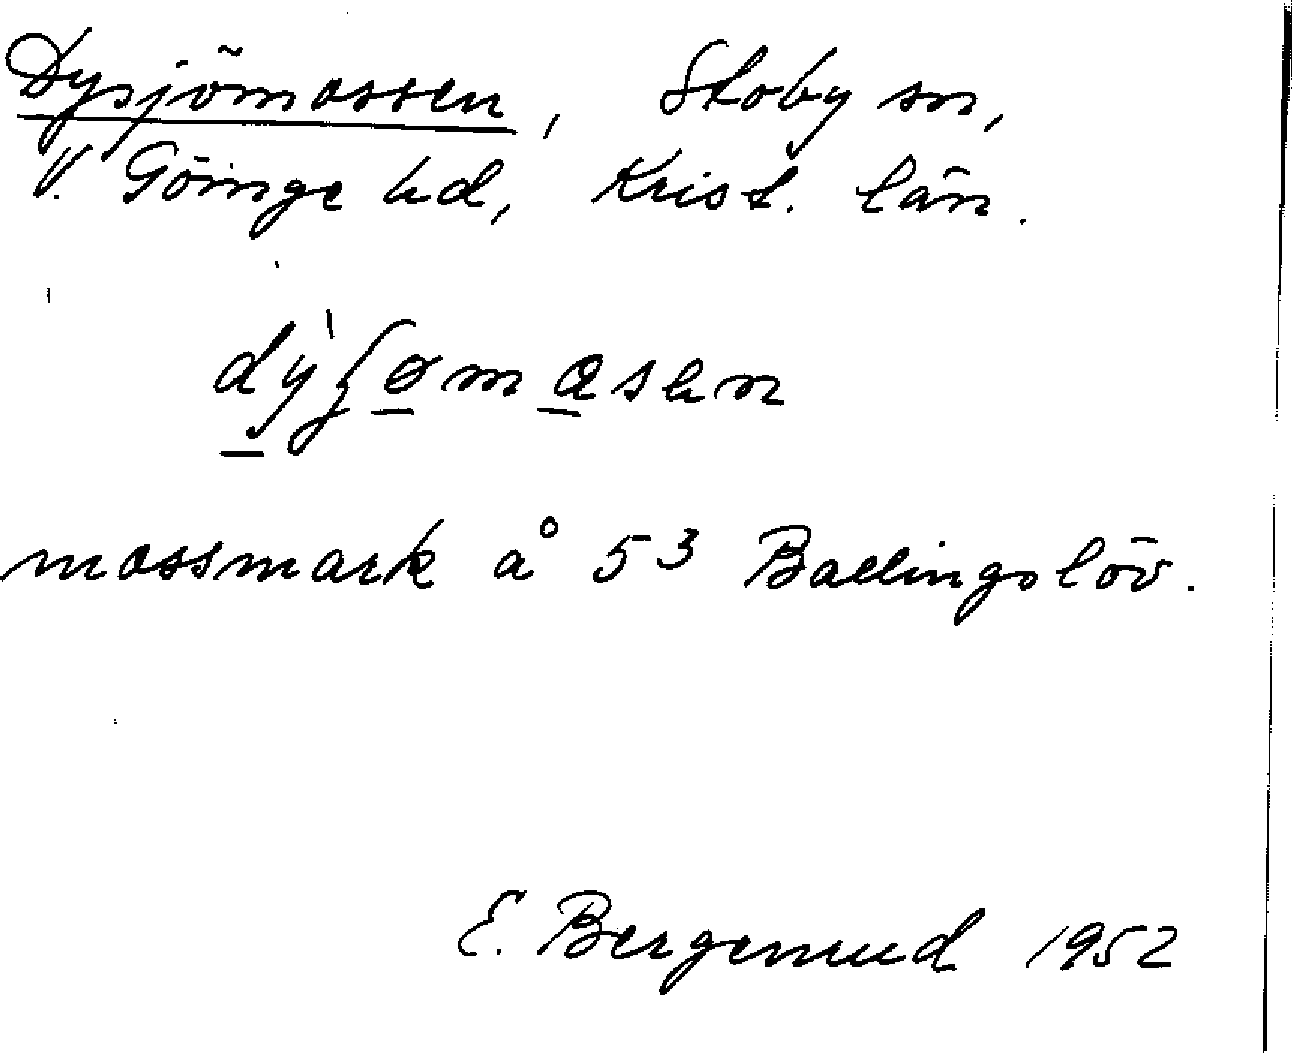 Dysjömossen, Stoby sn,
V. Göinge hd, Krist. län.
dỳʃømasen
mossmark å 5³ Ballingslöv.
E. Bergemud 1952